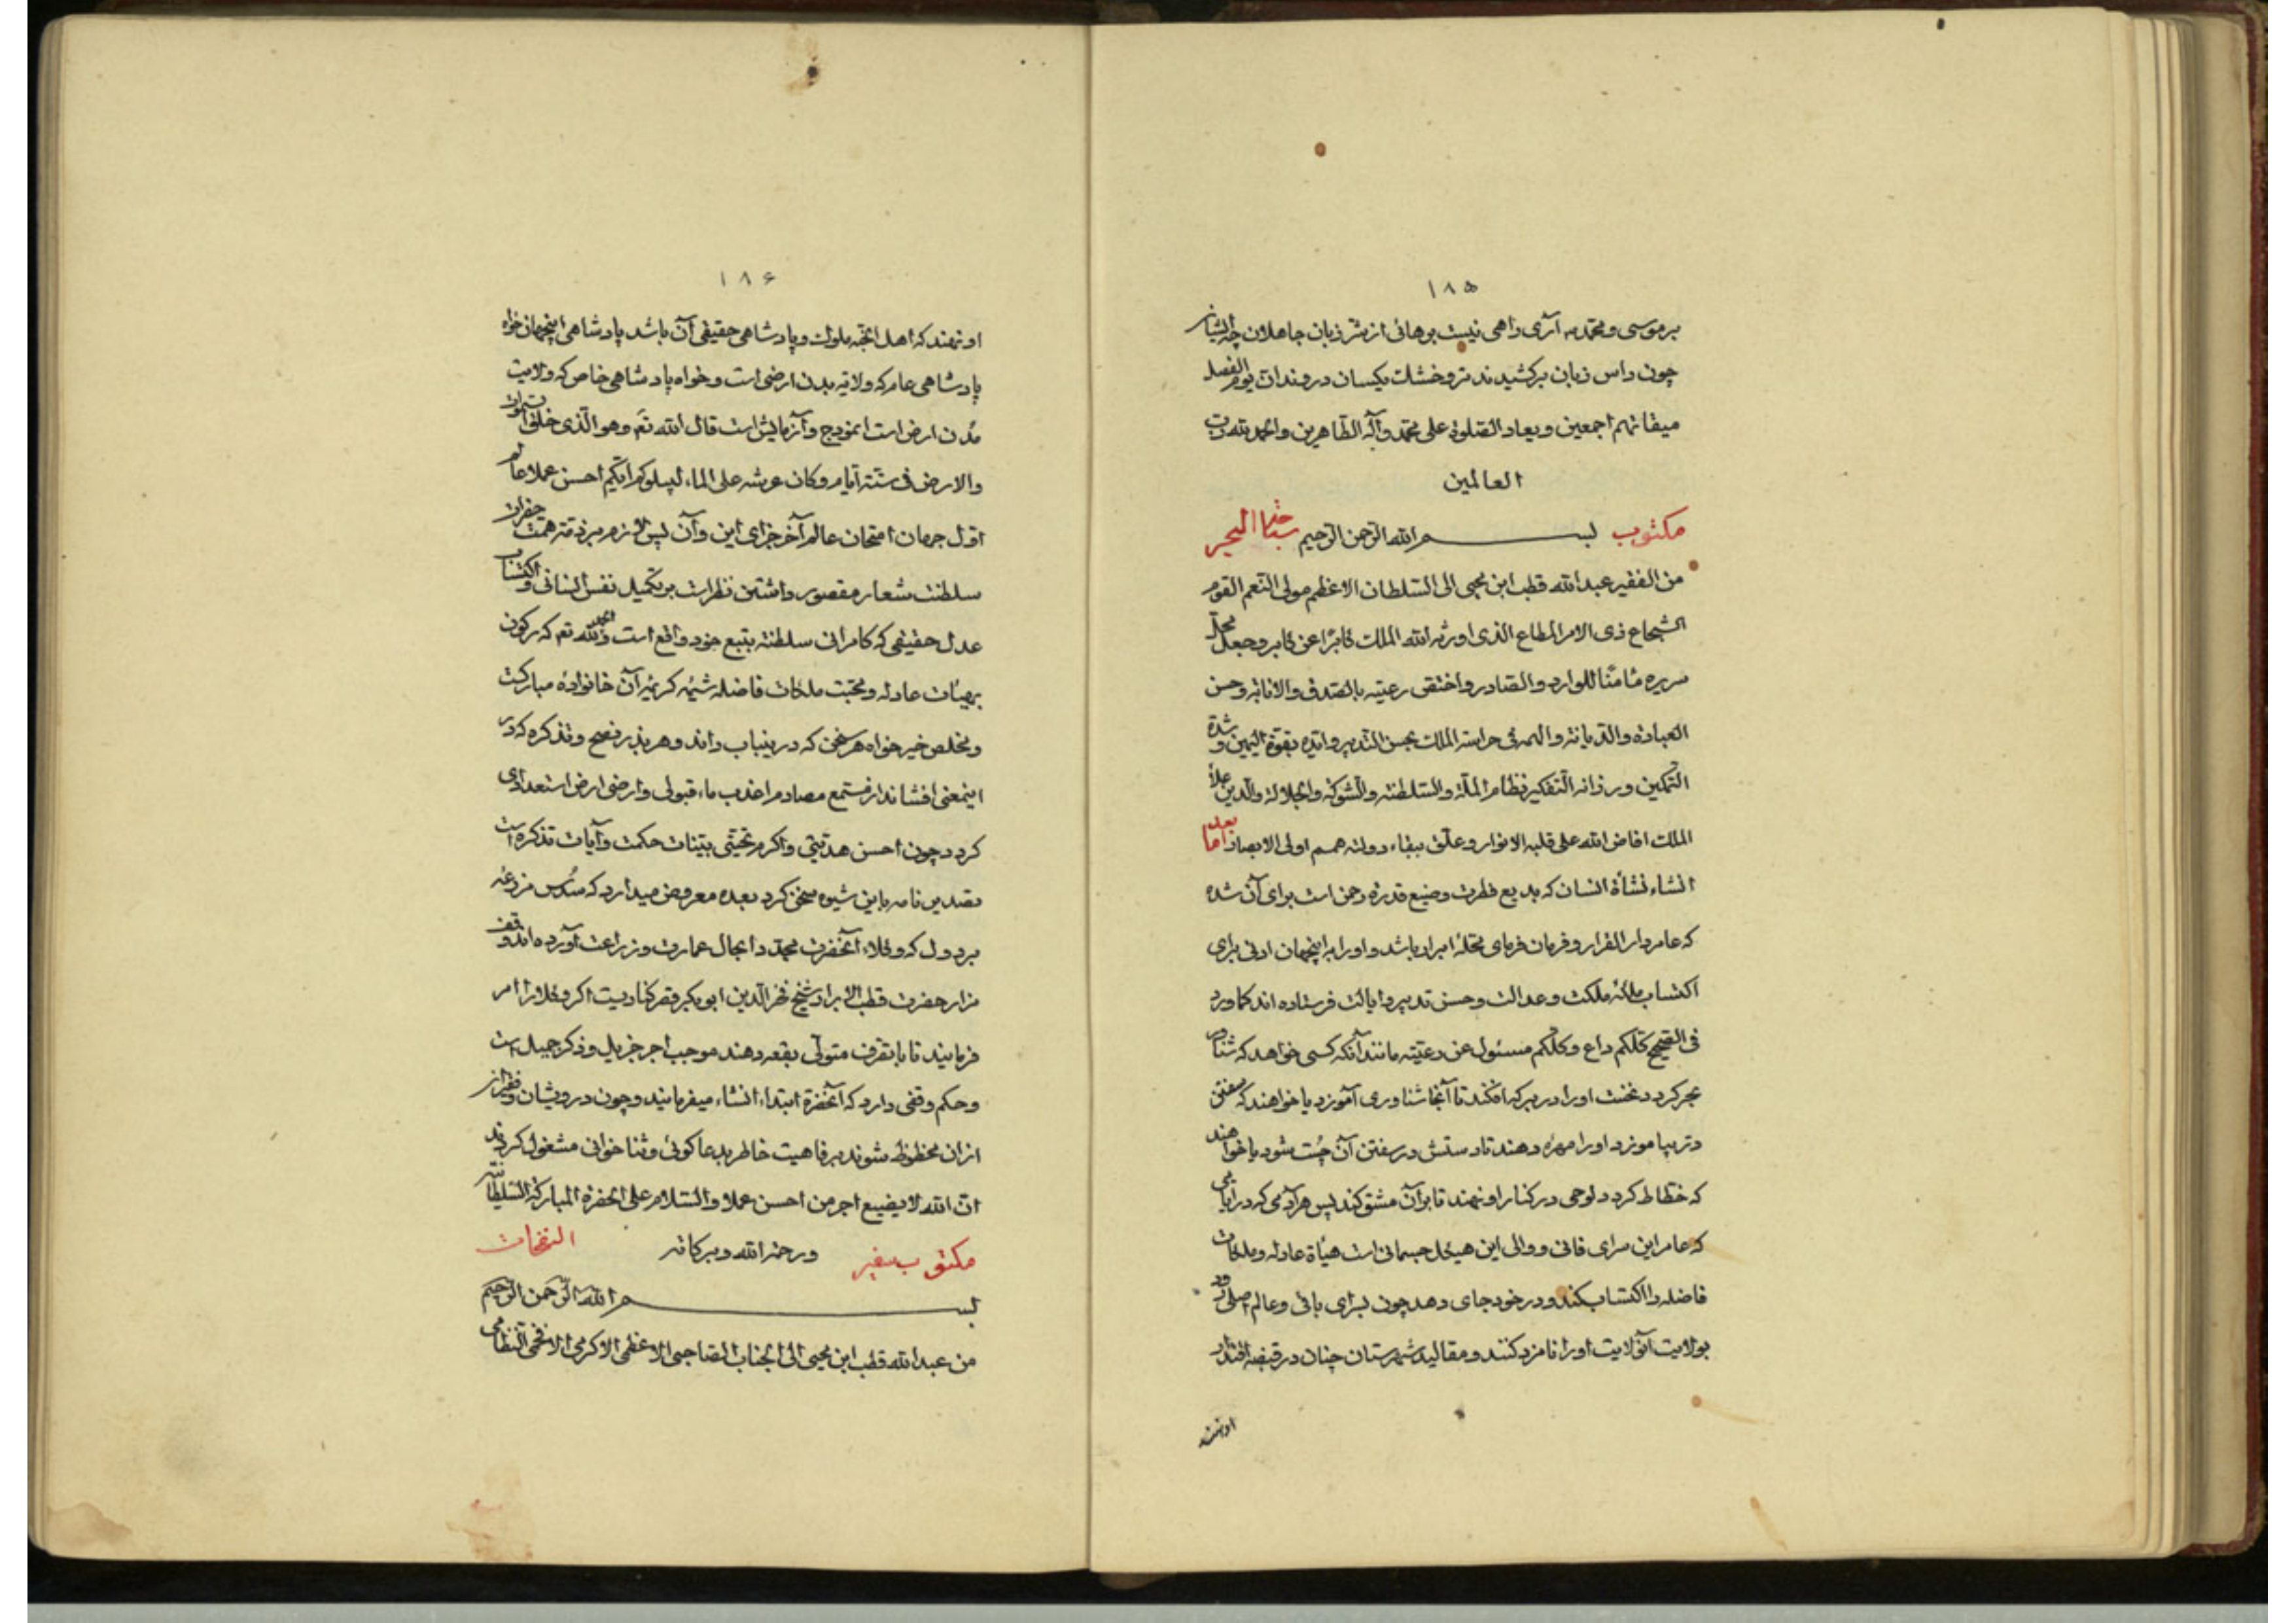 ۱۸۵
بر موسی و محمد نه آری داهی نیست برهانی از شر زبان جاهلان چه ایشان
چون داس زبان برکشیدند تر و خشک یکسان دروند ان یوم الفصل
میقاتهم اجمعین و یعاد الصلوة علی محمد وآله الطاهرین والحمد لله رب
العالمین
مکتوب بسم الله الرحمن الرحیم البحر
من الفقیر عبدالله قطب ابن یحیی الی السلطان الاعظم مولی النعم القرم
الشجاع ذی الامر المطاع الذی اورثه الله الملک کابرا عن کابر وجعل محل
سریره مأمنا للوارد والصادر واختص رعیته بالصدق والانابة وحسن
العبادة والدیانة والهمه فی حراسة الملک بحسن التدبیر وایده بقوة الیمین وشدة
التمکین ورزانة التفکیر نظام الملة والسلطنة والشوکة والجلالة والدین علاء
الملک افاض الله علی قلبه الانوار وعلق ببقاء دولته همم اولی الابصار اما بعد
انشاء نشأة انسان که بدیع فطرت وضیع قدرة رحمن است برای آن شده
که عامر دار القرار و فرمان فرمای محلۀ ابرار باشد و اورا به اینجهان ادنی برای
اکتساب ملکۀ ملکت و عدالت و حسن تدبیر و ایالت فرستاده اند کما ورد
فی الصحیح کلکم راع وکلکم مسئول عن رعیته مانند آنکه کسی خواهد که شناور
بحر کردد نخست اورا در برکه افکند تا آنجا شناوری آموزد یا خواهند که سفتن
در بیاموزد اورا مهره دهند تا دستش در سفتن آن چست شود یا خواهند
که خطاط کردد لوحی در کنار او نهند تا بر آن مشق کند پس هر آدمی که در ایامی
که عامر این سرای فانی و والی این هیکل جسمانی است هیأة عادله و ملکات
فاضله را اکتساب کند و در خود جای دهد چون بسرای باقی و عالم اصلی رود
بولایت آنولایت اورا نامزد کنند و مقالید شهرستان جنان در قبضه اقتدار
او نهند
۱۸۶
او نهند که اهل الجنة ملوک و پادشاهی حقیقی آن باشد پادشاهی اینجهان خواه
پادشاهی عام که ولایة بدن ارضی است و خواه پادشاهی خاص که ولایت
مدن ارض است انموذج و آزمایش است قال الله تع وهو الذی خلق السموات
والارض فی ستة ایام وکان عرشه علی الماء لیبلوکم ایکم احسن عملا عالم
اول جهان امتحان عالم آخر جزای این و آن پس لازم بر ذمۀ همت حضرات
سلطنت شعار مقصور داشتن نظرات بر تکمیل نفس انسانی و اکتساب
عدل حقیقی که کامرانی سلطنة بتبع خود واقع است والحمد لله تع که رکون
بهیئات عادله و محبت ملکات فاضله شیمۀ کریمۀ آن خانوادۀ مبارکست
و مخلص خیرخواه هر سخن که درینباب راند و هر بذر نصح و تذکره که در
اینمعنی افشاند از مستمع مصادم اعذب ماء قبولی و ارضی ارض استعدادی
کردد چون احسن هدیتی و اکرم تحیتی بینات حکمت و آیات تذکره است
تصدیر نامه باین شیوه سخن کرد بعده معروض میدارد که سدس مزرعۀ
بردول که وکلاء آنحضرت مجددا بحال عمارت و زراعت آورده اند وقف
مزار حضرت قطب الابرار شیخ فخر الدین ابوبکر قصر کنادیست اکر وکلا را امر
فرمایند تا با تصرف متولی بقعه دهند موجب اجر جزیل و ذکر جمیل است
و حکم وقفی دارد که آنحضرة ابتداء انشاء میفرمایند و چون درویشان و فقرا از
ازان محظوظ شوند برفاهیت خاطر بدعاکوئی و ثناخوانی مشغول کردند
ان الله لا یضیع اجر من احسن عملا والسلام علی الحضرة المبارکة السلطانیة
ورحمة الله وبرکاته
مکتوب النفحات
بسم الله الرحمن الرحیم
من عبدالله قطب ابن یحیی الی الجناب الصاحبی الاعظمی الاکرمی الافخمی النظامی